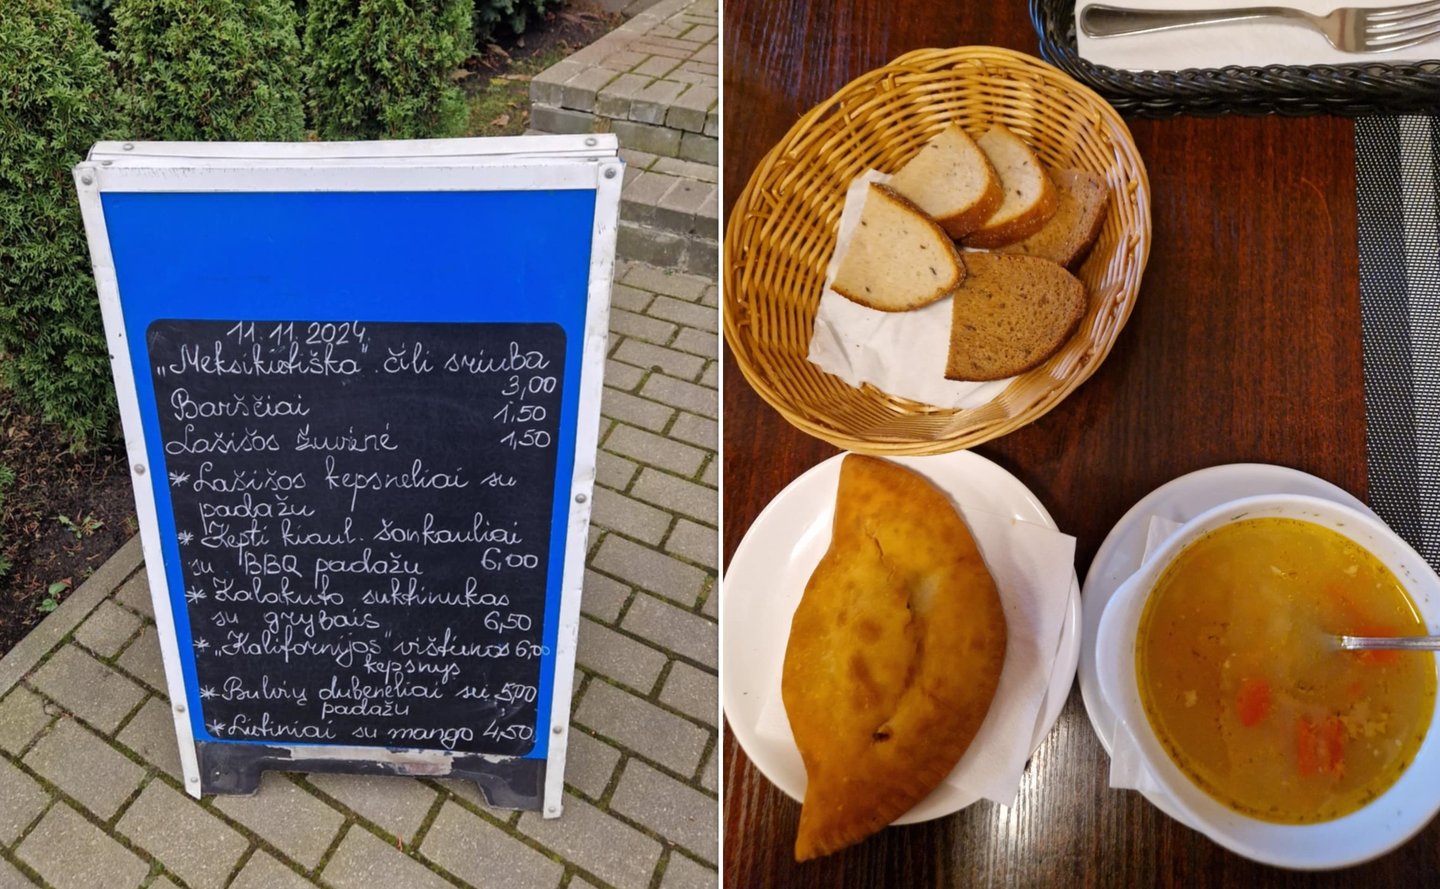 11.11.2024
„Meksikietiška" čili sriuba
3,00
Barščiai 1,50
Lašišos žuvienė 1,50
* Lašišos kepsneliai su
padažu
* Kepti kiaul. šonkauliai
su BBQ padažu 6,00
* Kalakuto suktinukas
su grybais 6,50
* „Kalifornijos" vištienos 6,00
kepsnys
* Bulvių dubenėliai su 5,00
padažu
* Lietiniai su mango 4,50